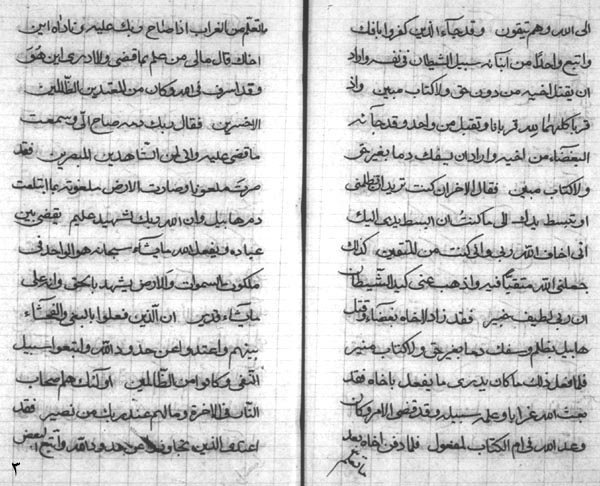 الى الله وهم يتقون وقد جاء الذين كفروا بافك
واتبع واحدا من ابنائه سبيل الشيطان في نفسه واراد
ان يقتل اخيه من دون حق ولا كتاب مبين واذ
قربا كلهما لله قربانا وتقبل من واحد وقد جائه
البغضاء من اخيه واراد ان يسفك دما بغير حق
ولا كتاب مبين فقال الاخر ان كنت تريد ان تظلمني
او تبسط يدك الي ما كنت ان ابسط يدي اليك
اني اخاف الله ربي واني كنت من المتقين كذلك
جعلني الله متقيا فيه واذهب عني كيد الشيطان
ان ربي لطيف خبير فقد زاد اخاه بغضاء وقتل
هابيل بظلم وسفك دما بغير حق ولا كتاب منير
فلما فعل ذلك ما كان يدري ما يفعل باخاه فقد
بعث الله غرابا وعلمه سبيله وقد قضى الامر وكان
وعد الله في ام الكتاب لمفعول فلما دفن اخاه بعد
ما تعلم
ما تعلم من الغراب اذا صاح ربك عليه وناداه اين
اخاك قال مالي من علم بما قضى ولا ادري اين هو
وقد اسرف في الله وكان من المعتدين الظالمين
الاخسرين فقال ربك دمه صاح الي وسمعت
ما قضي عليه واني لمن الشاهدين المبصرين فقد
صرت ملعونا وصارت الارض ملعونة بما ابتلعت
دم هابيل وان الله ربك لشهيد عليم يقضي بين
عباده ويفعل الله ما يشاء سبحانه هو الواحد في
ملكوت السموات والارض يشهد بالحق وانه على
ما يشاء قدير ان الذين فعلوا بالبغي والفحشاء
بينهم واعتدوا عن حدود الله واتبعوا سبيل
البغي وكانوا من الظالمين اولئك هم اصحاب
النار في الاخرة وما لهم عند ربك من نصير فقد
اعتدوا الذين تجاوزوا عن حدود الله واتبع البعض
٣